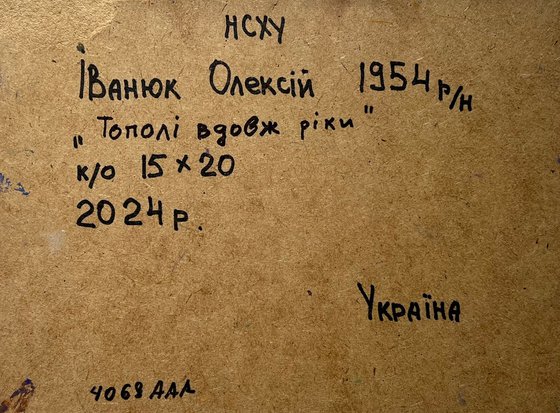 НСХУ
Іванюк Олексій 1954 р/н
„Тополі вдовж ріки"
к/о 15 × 20
2024 р.
Україна
4068 ДАД